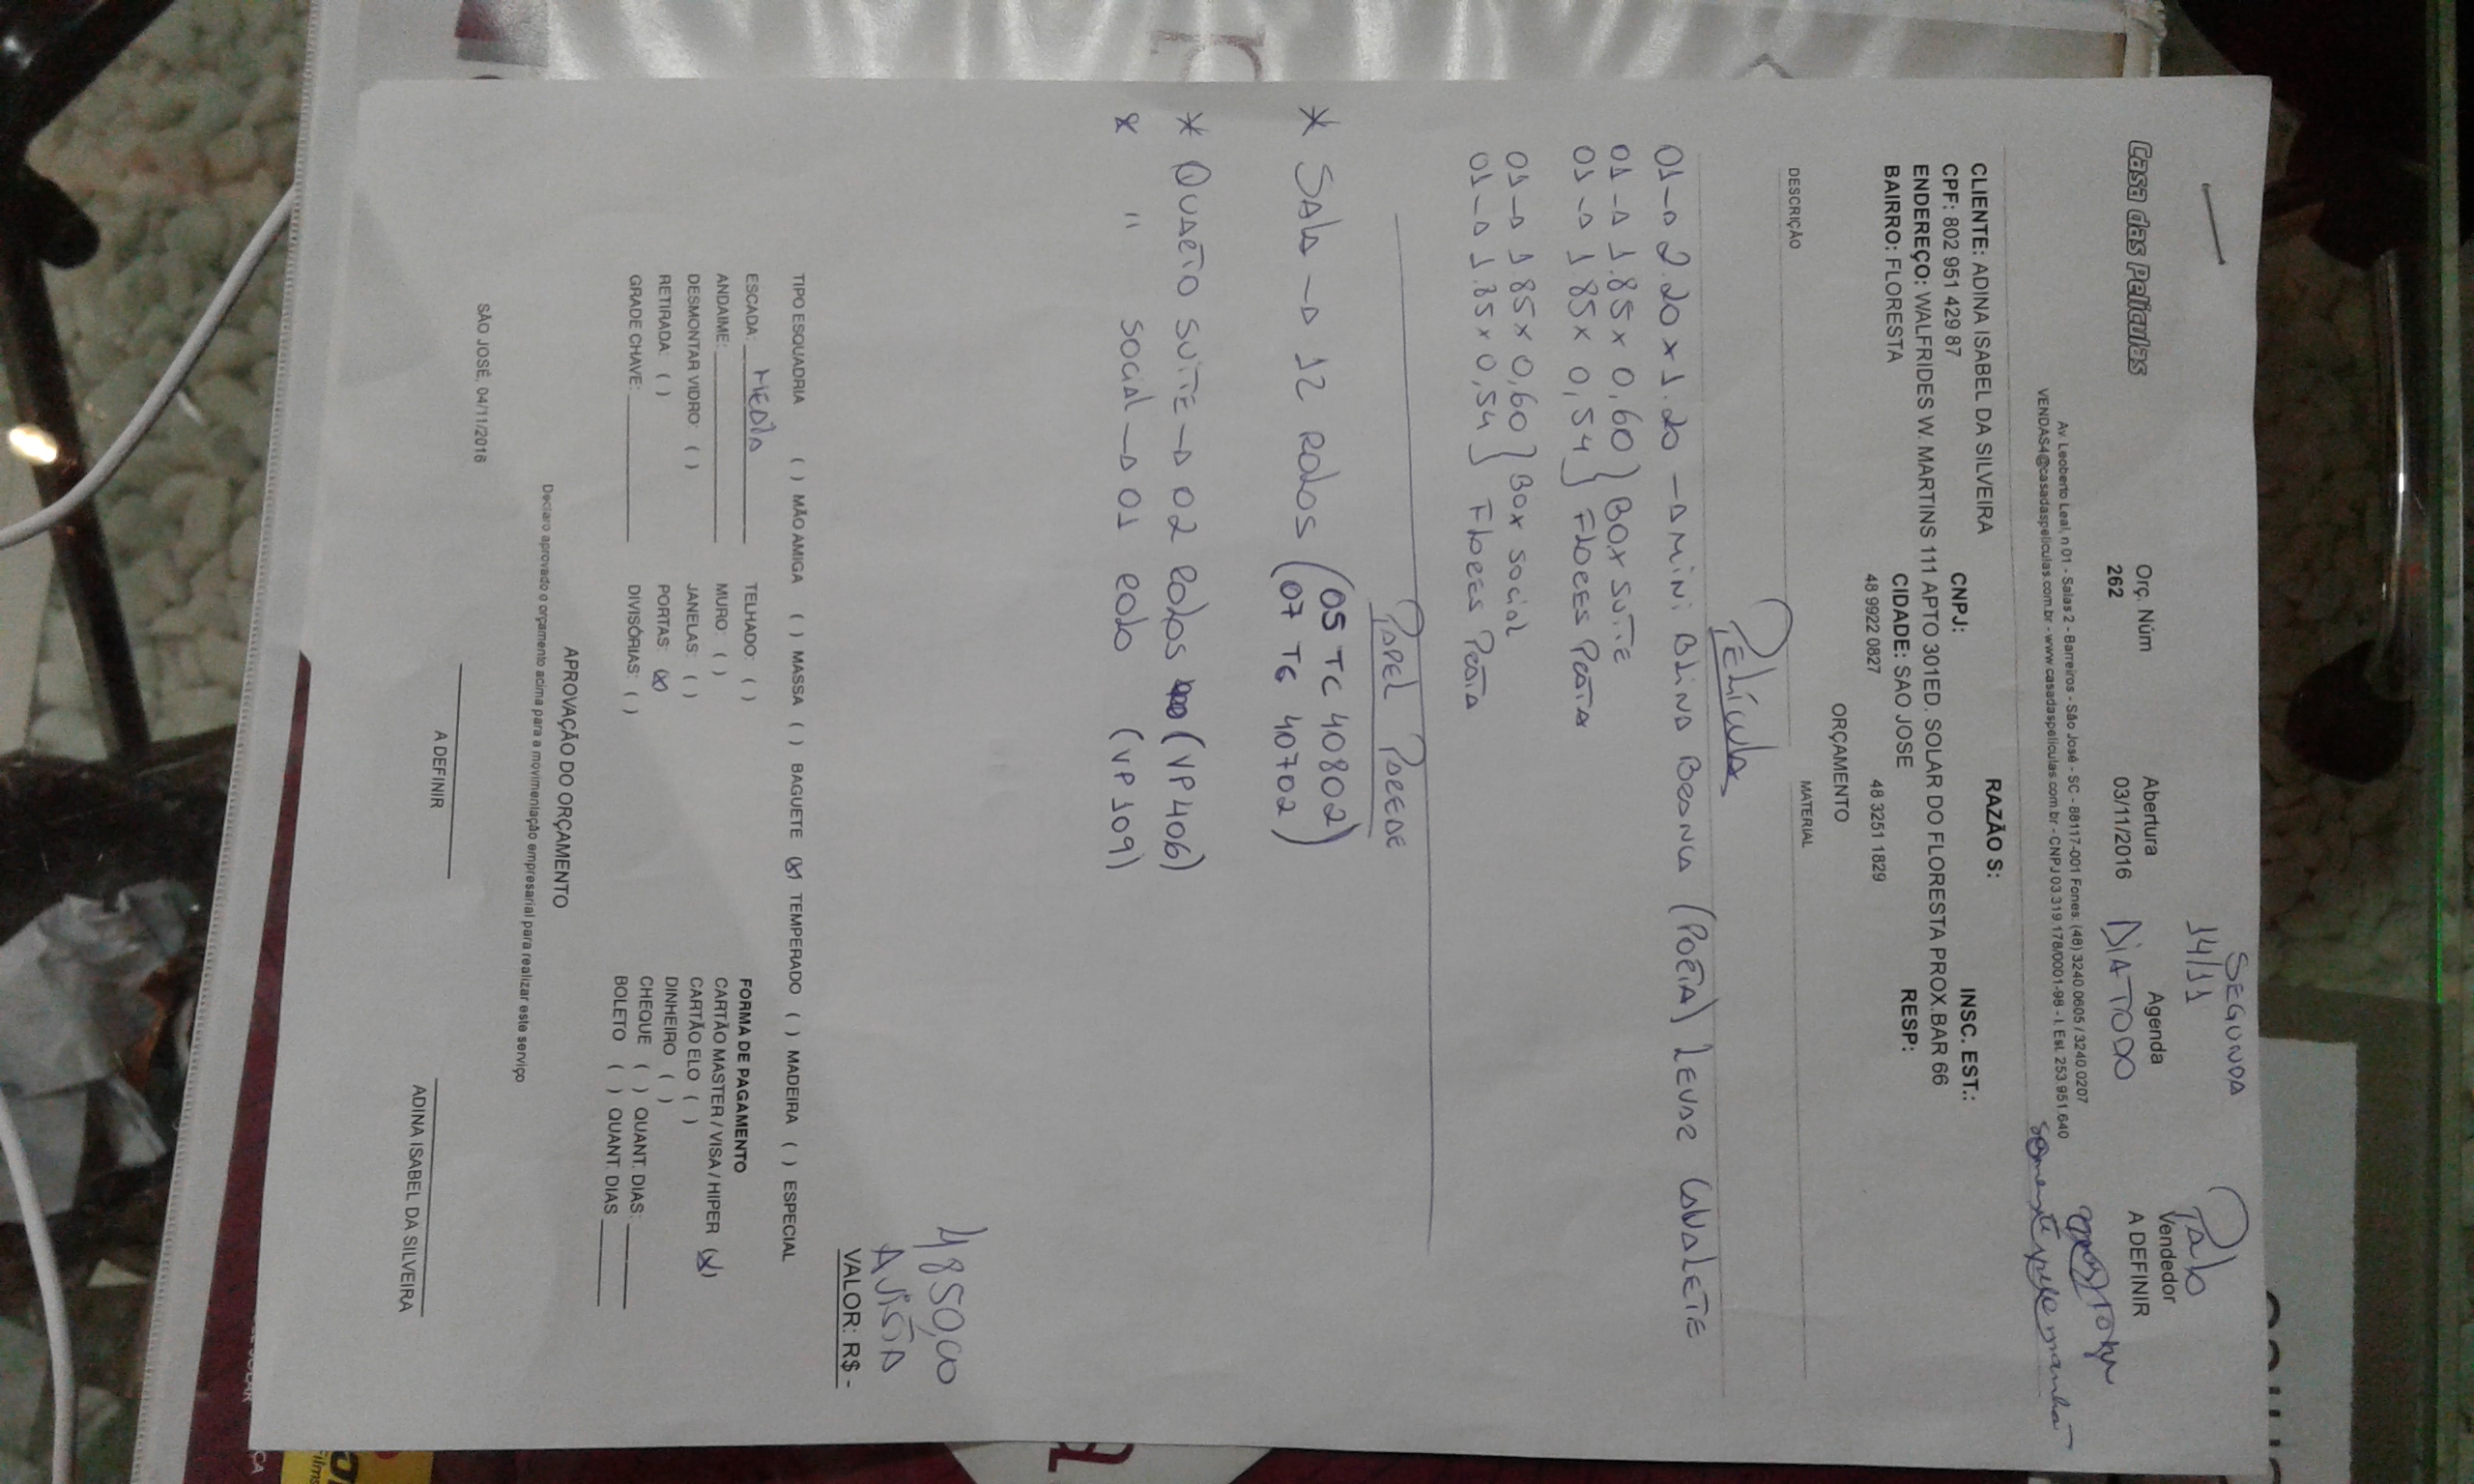 SEGUNDA
14/11
Pablo
Casa das Películas
Orç. Núm
262
Abertura
03/11/2016
Agenda
DIA TODO
Vendedor
A DEFINIR
Av Leoberto Leal, n 01 - Salas 2 - Barreiros - São José - SC - 88117-001 Fones: (48) 3240.0605 / 3240.0207
VENDAS4@casadaspeliculas.com.br - www.casadaspeliculas.com.br - CNPJ 03.319.178/0001-98 - I. Est. 253.951.640
somente pela manhã
CLIENTE: ADINA ISABEL DA SILVEIRA
RAZÃO S:
CPF: 802 951 429 87
CNPJ:
INSC. EST.:
ENDEREÇO: WALFRIDES W. MARTINS 111 APTO 301ED. SOLAR DO FLORESTA PROX.BAR 66
BAIRRO: FLORESTA
CIDADE: SAO JOSE
RESP:
48 9922 0827
48 3251 1829
ORÇAMENTO
DESCRIÇÃO
MATERIAL
Película
01 → 2.20 x 1.20 → Mini Blind Branca (Porta) Levar Cavalete
01 → 1.85 x 0,60 } Box suíte
01 → 1.85 x 0,54 } Flores Preta
01 → 1.85 x 0,60 } Box social
01 → 1.85 x 0,54 } Flores Preta
Papel Parede
* Sala → 12 Rolos (05 TC 40802)
(07 TC 40702)
* Quarto Suíte → 02 Rolos (VP 406)
* " Social → 01 Rolo (VP 109)
4850,00
A Vista
VALOR: R$ -
TIPO ESQUADRIA ( ) MÃO AMIGA ( ) MASSA ( ) BAGUETE (X) TEMPERADO ( ) MADEIRA ( ) ESPECIAL
ESCADA: MÉDIA
TELHADO: ( )
FORMA DE PAGAMENTO
ANDAIME:
MURO: ( )
CARTÃO MASTER / VISA / HIPER (X)
DESMONTAR VIDRO: ( )
JANELAS: ( )
CARTÃO ELO ( )
RETIRADA: ( )
PORTAS: (X)
DINHEIRO ( )
GRADE CHAVE:
DIVISÓRIAS: ( )
CHEQUE ( ) QUANT. DIAS:
BOLETO ( ) QUANT. DIAS
APROVAÇÃO DO ORÇAMENTO
Declaro aprovado o orçamento acima para a movimentação empresarial para realizar este serviço
SÃO JOSÉ, 04/11/2016
A DEFINIR
ADINA ISABEL DA SILVEIRA